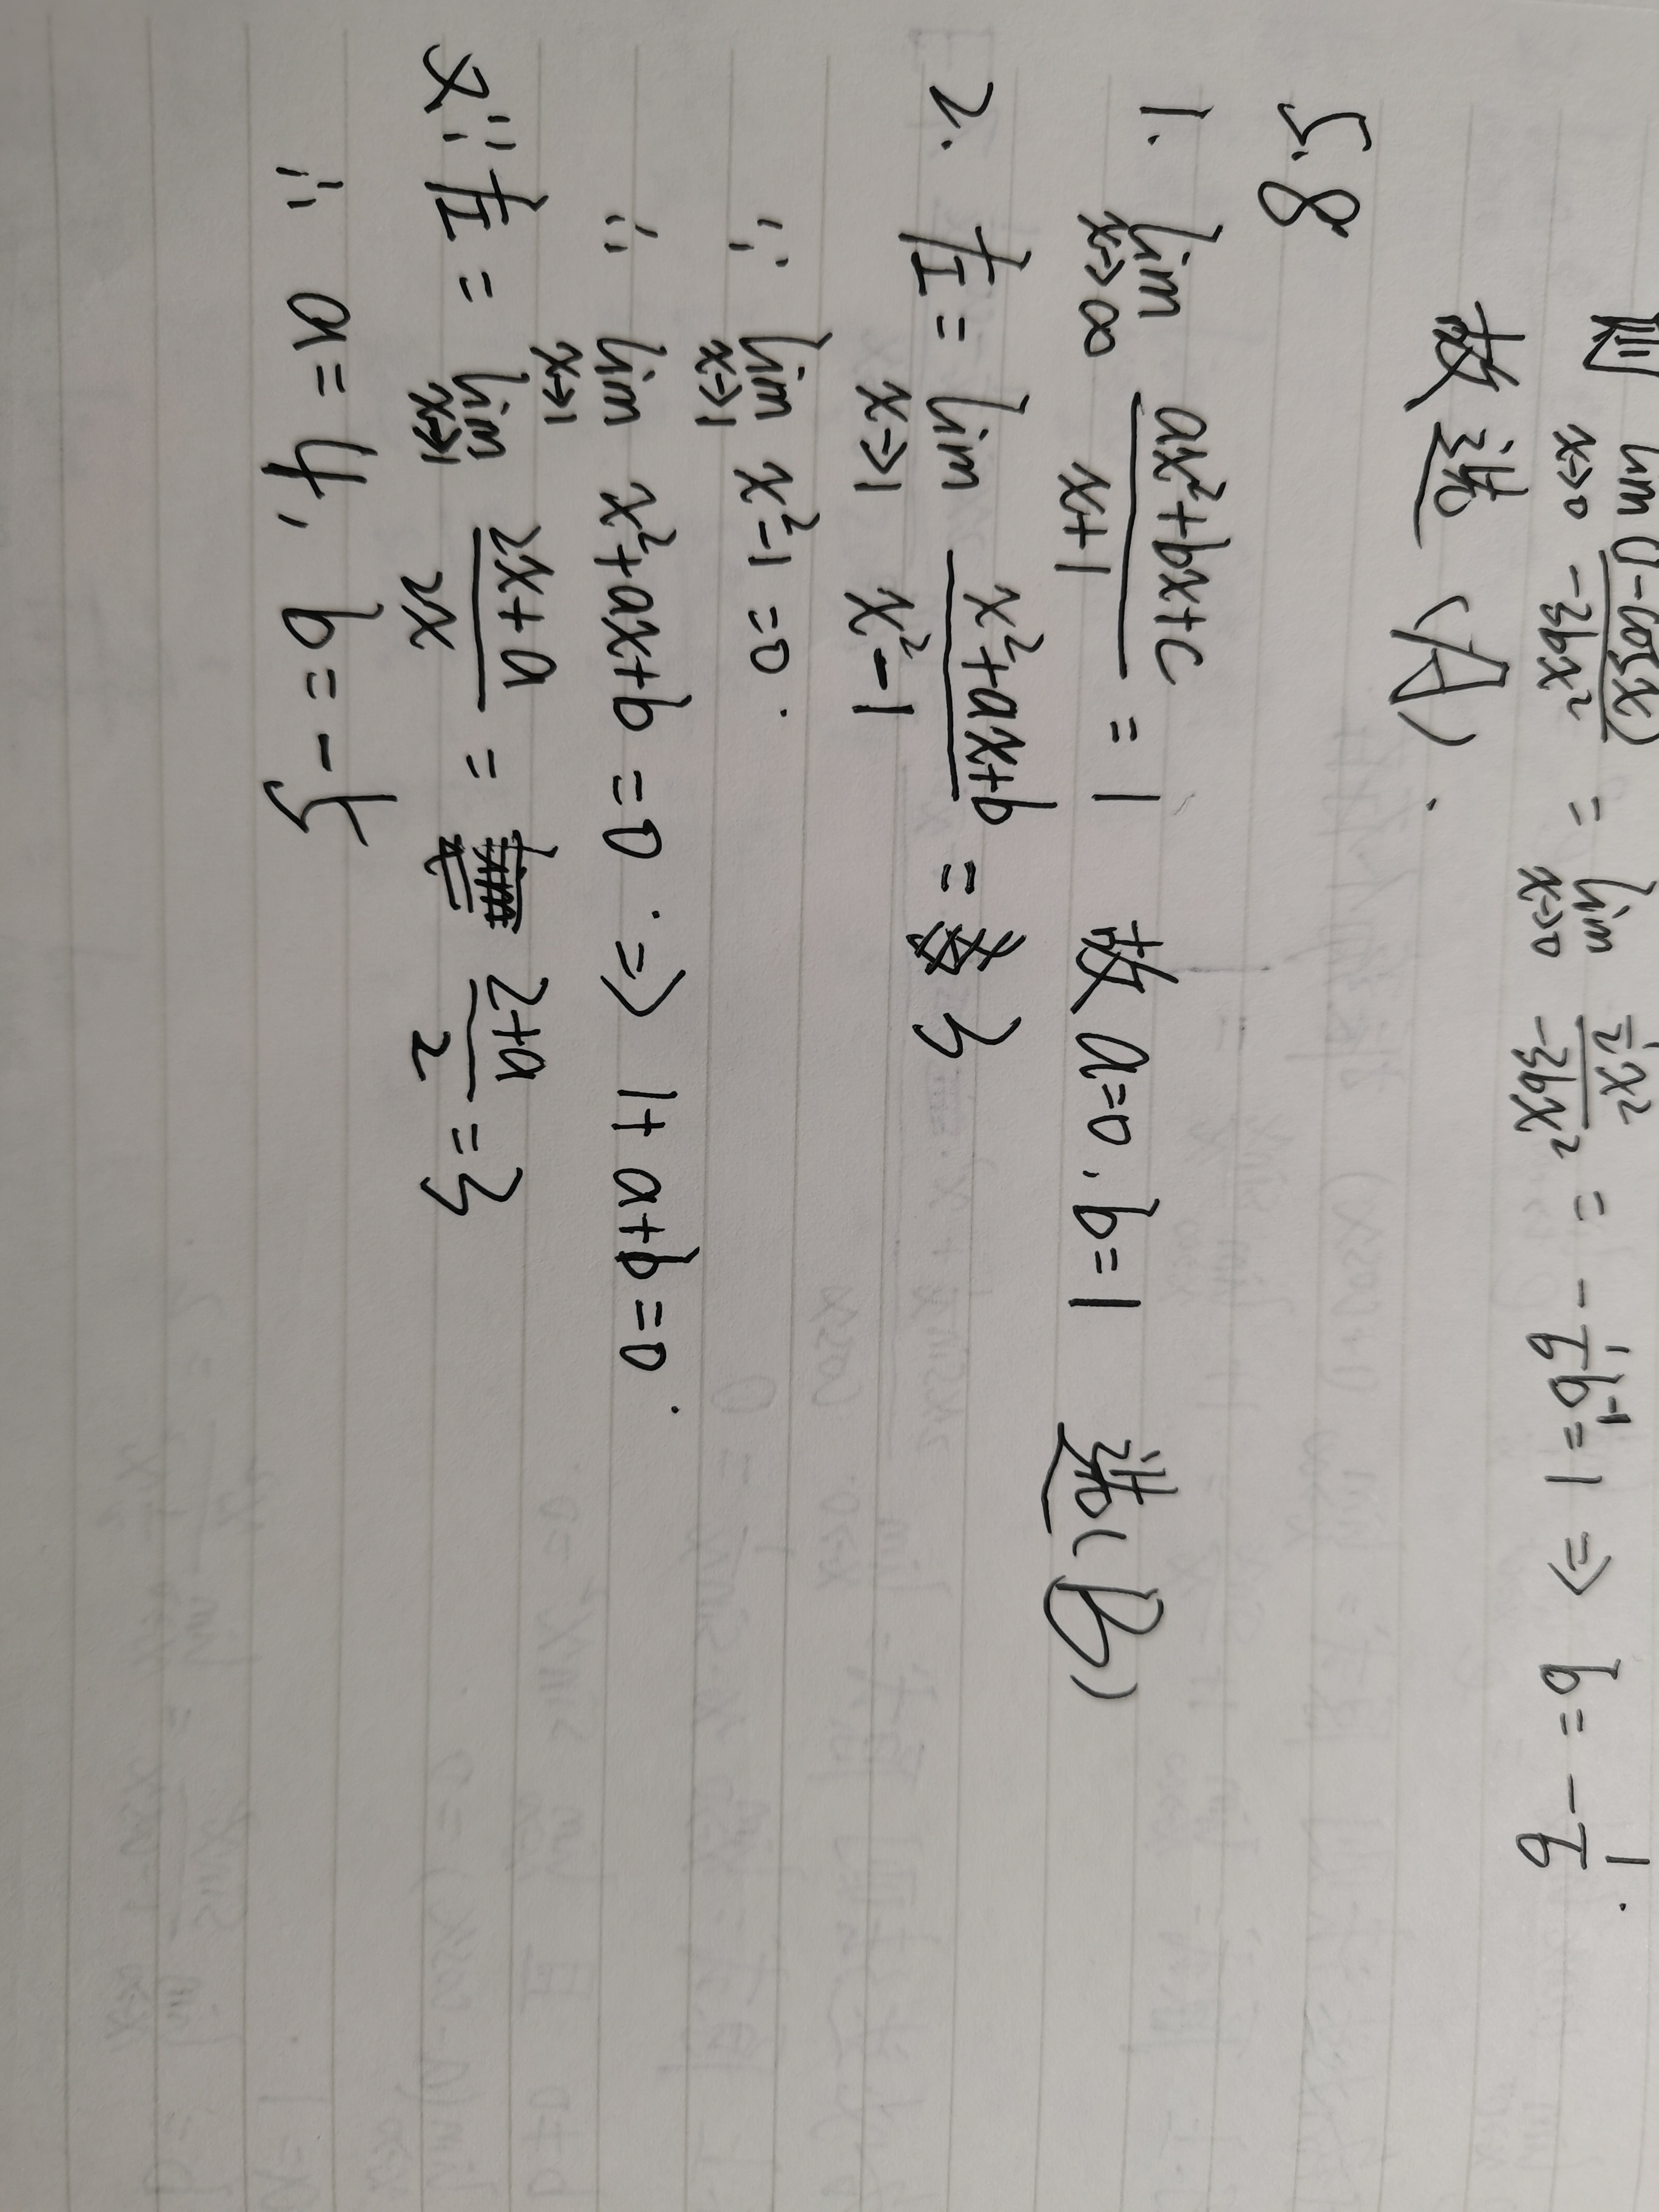 则 lim x→0 (1-cosx)/(-3bx²) = lim x→0 (½x²)/(-3bx²) = -1/6 b⁻¹ = 1 ⇒ b = -1/6.
故选 (A).
5.8
1. lim x→∞ (ax²+bx+c)/(x+1) = 1 故 a=0, b=1 选(B)
2. 左 = lim x→1 (x²+ax+b)/(x²-1) = 3
∵ lim x→1 x²-1 =0.
∴ lim x→1 x²+ax+b =0. ⇒ 1+a+b=0.
又∵左 = lim x→1 (2x+a)/(2x) = (2+a)/2 = 3
∴ a=4, b=-5